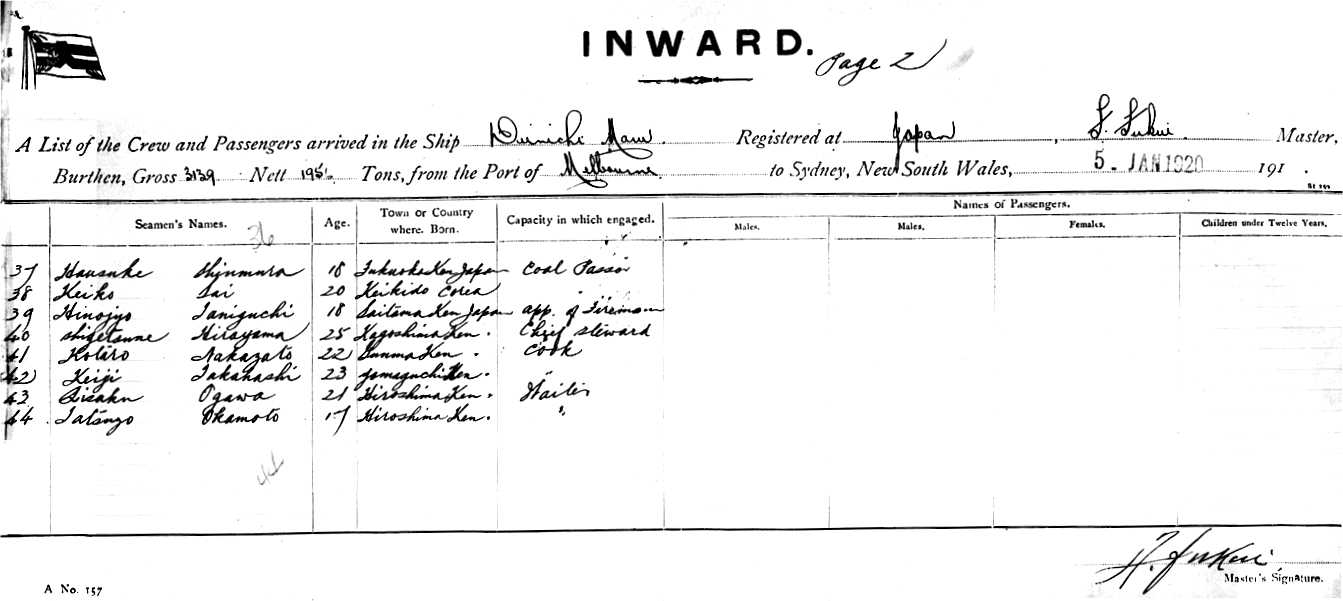 INWARD.
Page 2
A List of the Crew and Passengers arrived in the Ship Dainichi Maru Registered at Japan, Master,
Burthen, Gross 3139 Nett 195 Tons, from the Port of Melbourne to Sydney, New South Wales, 5 JAN 1920 191 .
Seamen's Names. Age. Town or Country where. Born. Capacity in which engaged. Names of Passengers.
Males. Males. Females. Children under Twelve Years.
36
37 Shinmura 18 Fukuoka Ken Japan Coal Passer
38 Keiko Sai 20 Keikido Corea
39 Hinojyo Taniguchi 18 Saitama Ken Japan app. of Fireman
40 Shigetsune Hirayama 25 Kagoshima Ken . Chief Steward
41 Kotaro Nakazato 22 Gunma Ken . Cook
42 Keiji Takahashi 23 Yamaguchi Ken . "
43 Risaku Ogawa 21 Hiroshima Ken . Waiter
44 Okamoto 17 Hiroshima Ken . "
44
Master's Signature.
A No. 157